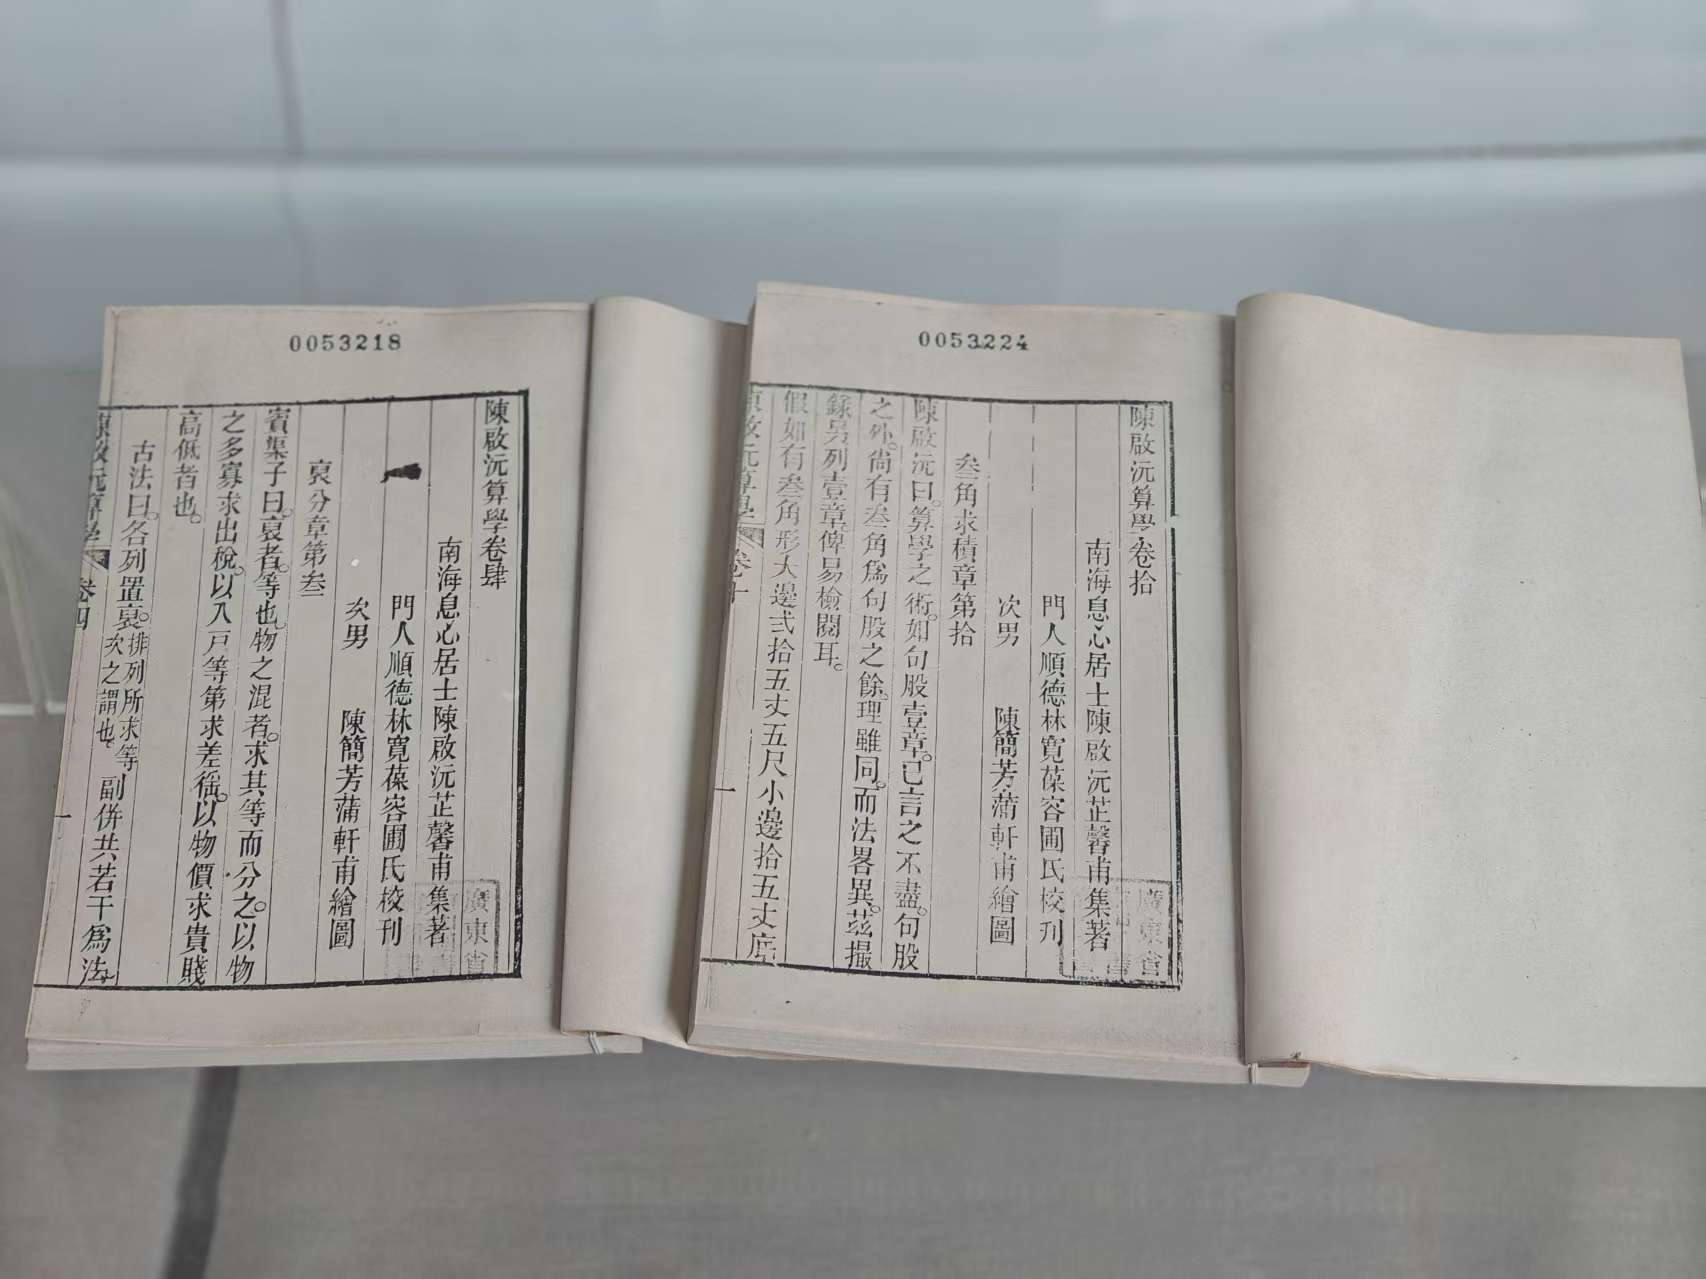 0053218
陳啟沅算學卷肆
南海息心居士陳啟沅芷馨甫集著
門人順德林寬葆容圃氏校刊
次男 陳簡芳蒲軒甫繪圖
衰分章第叁
賓渠子曰。衰者。等也。物之混者。求其等而分之。以物
之多寡求出稅。以入戸等第求差徭。以物價求貴賤
高低者也。
古法曰。各列置衰。排列所求等次之謂也。副併共若干爲法。
陳啟沅算學 卷四 一
廣東省
0053224
陳啟沅算學卷拾
南海息心居士陳啟沅芷馨甫集著
門人順德林寬葆容圃氏校刊
次男 陳簡芳蒲軒甫繪圖
叁角求積章第拾
陳啟沅曰。算學之術。如句股壹章。已言之不盡。句股
之外。尙有叁角爲句股之餘。理雖同。而法畧異。茲撮
錄另列壹章。俾易檢閱耳。
假如有叁角形大邊弍拾五丈五尺小邊拾五丈底
陳啟沅算學 卷十 一
廣東省